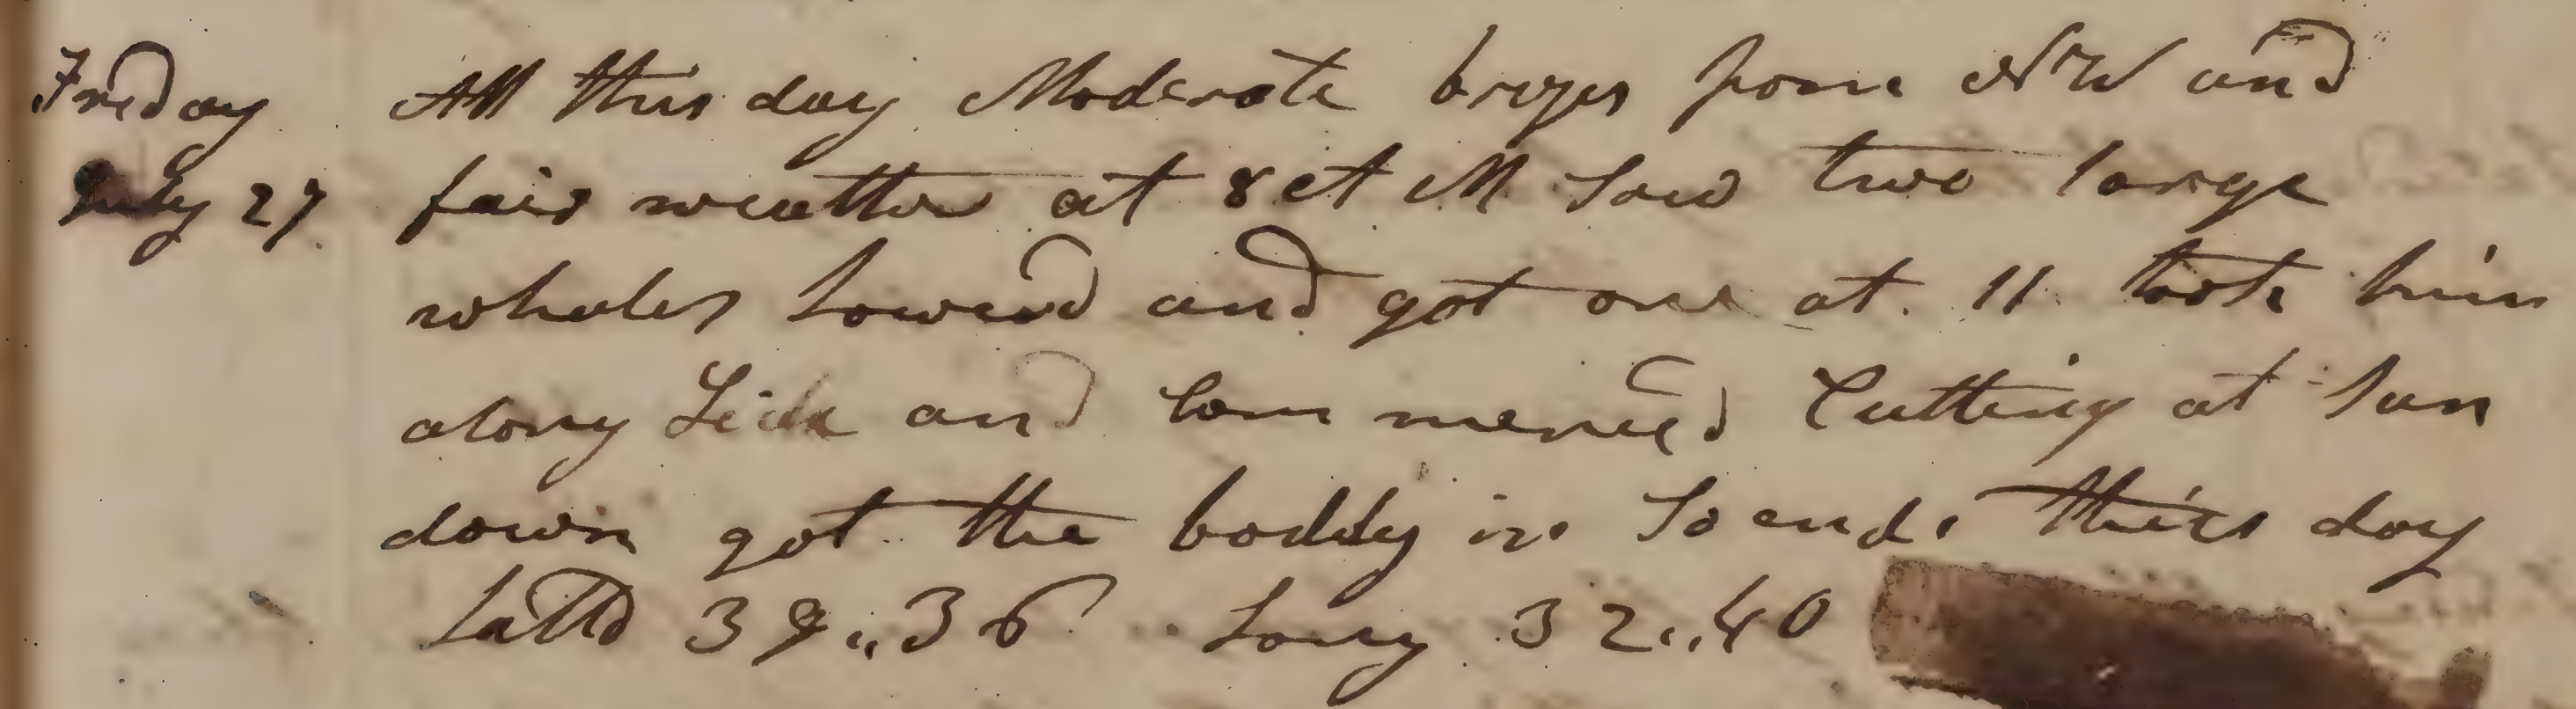 Friday All this day Moderate brezes from NW and
July 27 fair weather at 8 A M Saw two large
whales Lowerd and got one at 11 took him
along Side and Commenced Cutting at Sun
down got the boddy in So ends this day
Lattd 39,,36 Long 32,,40